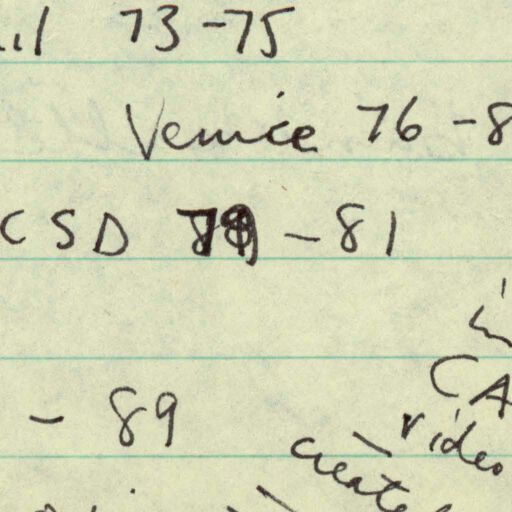 73-75
Venice 76-8
CSD 79-81
in
CA
- 89
video
create